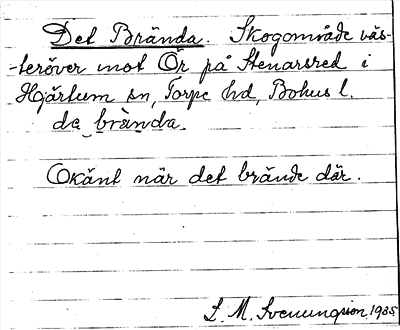 Det Brända. Skogområde väs-
-teröver mot Ör på Stenarsred i
Hjärtum sn, Torpe hd, Bohus l.
de brànda.
Okänt när det brände där.
S. M. Svenungson. 1935